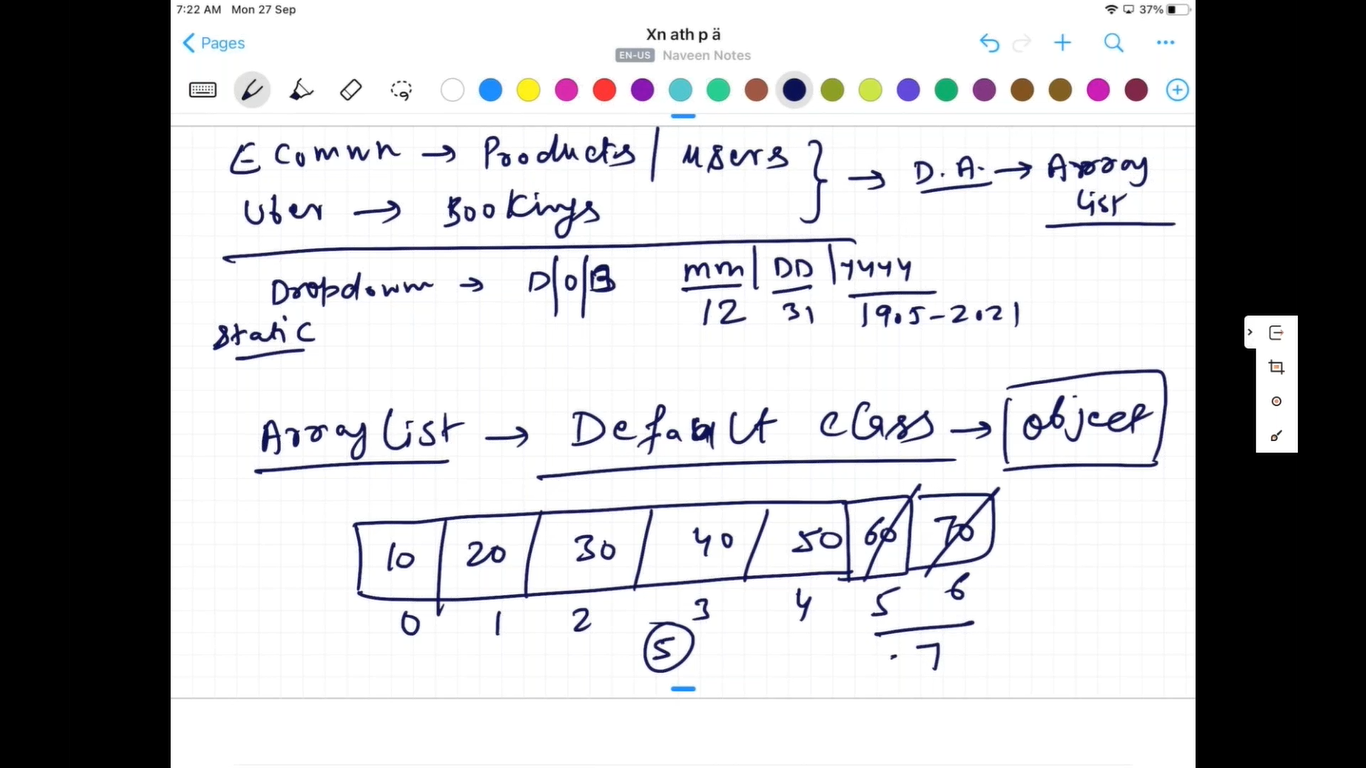 7:22 AM Mon 27 Sep 37%
Pages
Xn ath p ä
EN-US Naveen Notes
E Comwn → Products / users } → D.A. → Array list
Uber → Bookings
Dropdown → D/O/B mm | DD | yyyy
static 12 31 1905-2021
Array list → Default class → object
10 20 30 40 50 60 70
0 1 2 3 4 5 6
5 7